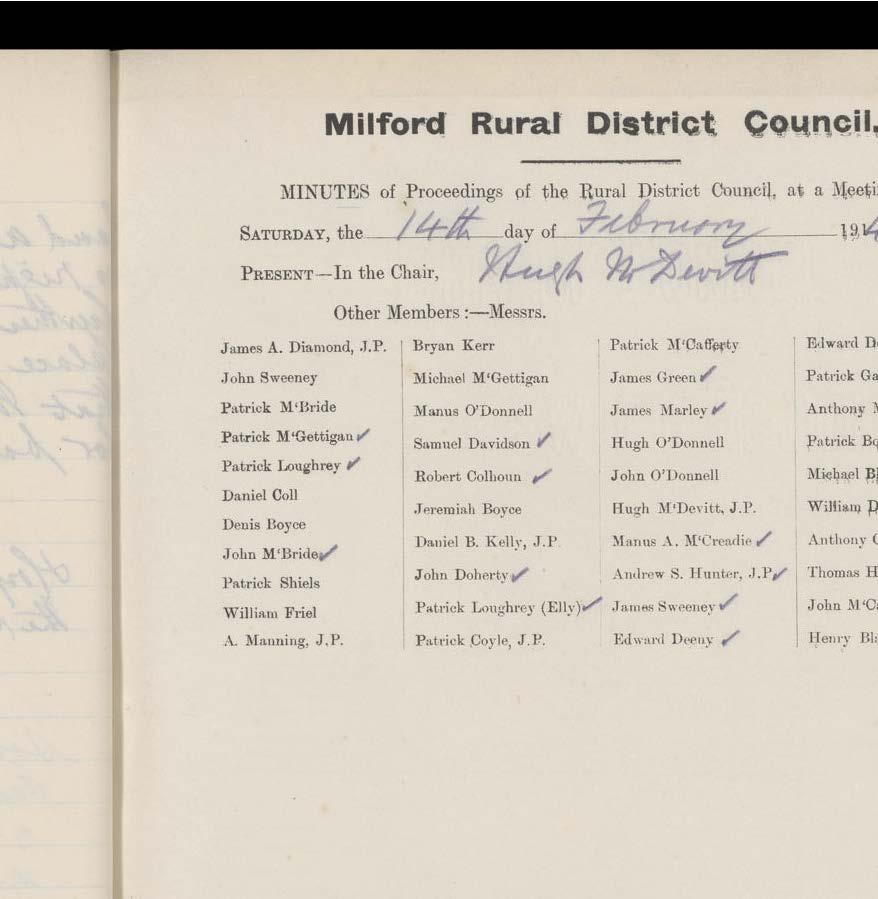 Milford Rural District Council,
MINUTES of Proceedings of the Rural District Council, at a Meeti
SATURDAY, the 14th day of February 1914
PRESENT—In the Chair, Hugh McDevitt
Other Members :—Messrs.
James A. Diamond, J.P.
John Sweeney
Patrick M‘Bride
Patrick M‘Gettigan ✓
Patrick Loughrey ✓
Daniel Coll
Denis Boyce
John M‘Bride ✓
Patrick Shiels
William Friel
A. Manning, J.P.
Bryan Kerr
Michael M‘Gettigan
Manus O’Donnell
Samuel Davidson ✓
Robert Colhoun ✓
Jeremiah Boyce
Daniel B. Kelly, J.P.
John Doherty ✓
Patrick Loughrey (Elly) ✓
Patrick Coyle, J.P.
Patrick M‘Cafferty
James Green ✓
James Marley ✓
Hugh O’Donnell
John O’Donnell
Hugh M‘Devitt, J.P.
Manus A. M‘Creadie ✓
Andrew S. Hunter, J.P. ✓
James Sweeney ✓
Edward Deeny ✓
Edward D
Patrick Ga
Anthony M
Patrick Bo
Michael Bl
William D
Anthony
Thomas H
John M‘Ca
Henry Bla